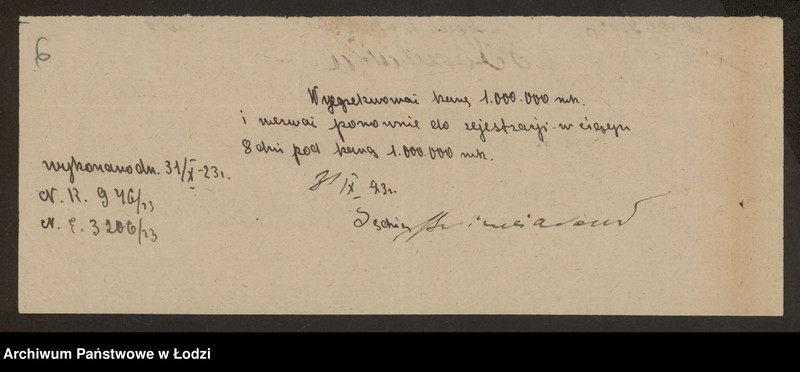 6
Wyegzekwować karę 1.000.000 mk.
i wezwać ponownie do rejestracji w ciągu
8 dni pod karą 1.000.000 mk.
31/X 23r.
Sędzia
wykonano dn. 31/X-23r.
N. R. 946/23
N. E. 3206/23
Archiwum Państwowe w Łodzi